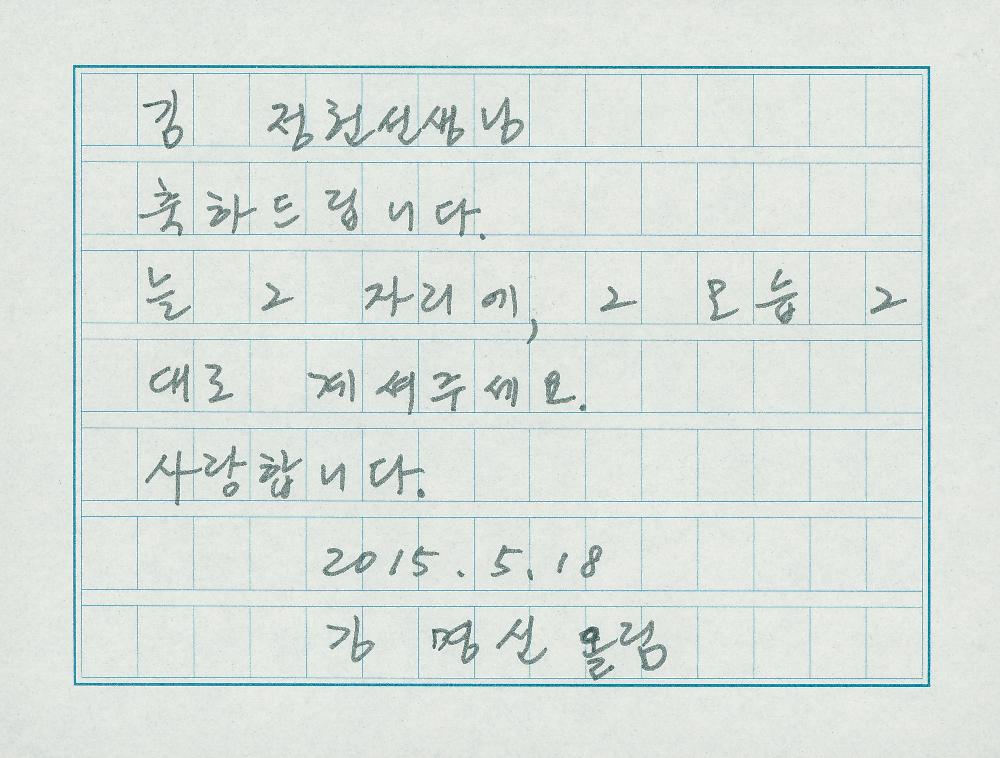 김 정헌선생님
축하드립니다.
늘 그 자리에, 그 모습 그
대로 계셔주세요.
사랑합니다.
2015. 5. 18
김 명선 올림